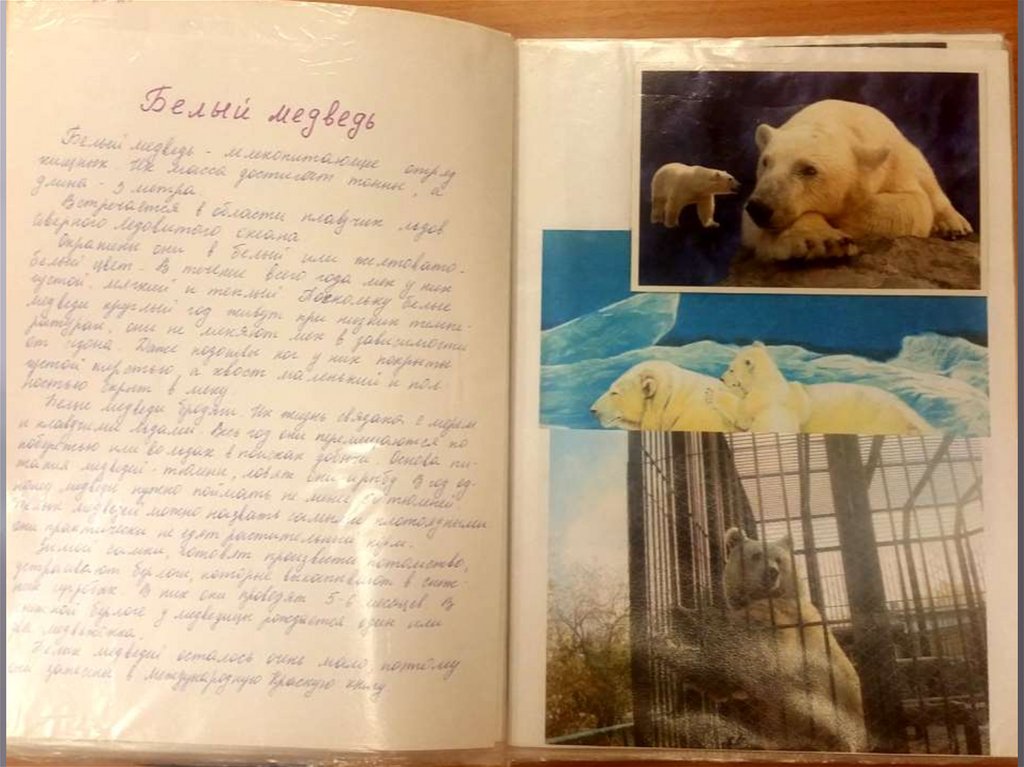 Белый медведь
Белый медведь - млекопитающие отряд
хищных. Их масса достигает тонны, а
длина - 3 метра.
Встречается в области плавучих льдов
Северного Ледовитого океана
Окрашены они в белый или желтовато-
белый цвет. В течение всего года мех у них
густой, мягкий и теплый. Поскольку белые
медведи круглый год живут при низких темпе-
ратурах, они не меняют мех в зависимости
от сезона. Даже подошвы ног у них покрыты
густой шерстью, а хвост маленький и пол-
ностью скрыт в меху
Белые медведи бродяги. Их жизнь связана с морем
и плавучими льдами. Весь год они перемещаются по
побережью или во льдах в поисках добычи. Основа пи-
тания медведей - тюлени, ловят они и рыбу. В год од-
ному медведю нужно поймать не менее тюленей
Белых медведей можно назвать самыми плотоядными
они практически не едят растительный корм.
Зимой самки, готовят произвести потомство,
устраивают берлоги, которые выкапывают в снеж-
ных сугробах. В них они проводят 5-6 месяцев. В
снежной берлоге у медведицы рождается один или
два медвежонка.
Белых медведей осталось очень мало, поэтому
они занесены в Международную Красную книгу